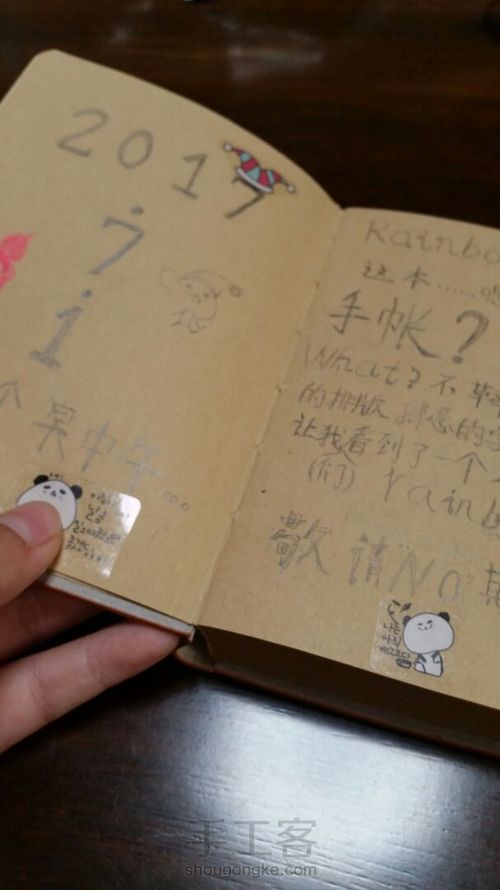 2017
.7
.1
个 旱中午...
Rainbo
这本......
手帐?
What? 不
的排版 的字
让我看到了一个
(们) rainb
敬请"No"期
나는
아직
배고프다
手工客
shougongke.com